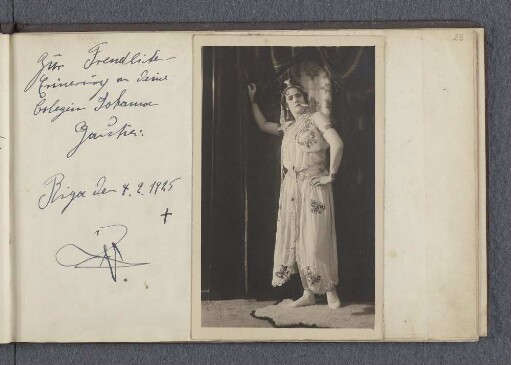 Zur Freundliche
Erinering an deine
Colegin Johanna
Riga den 4.2.1925
28